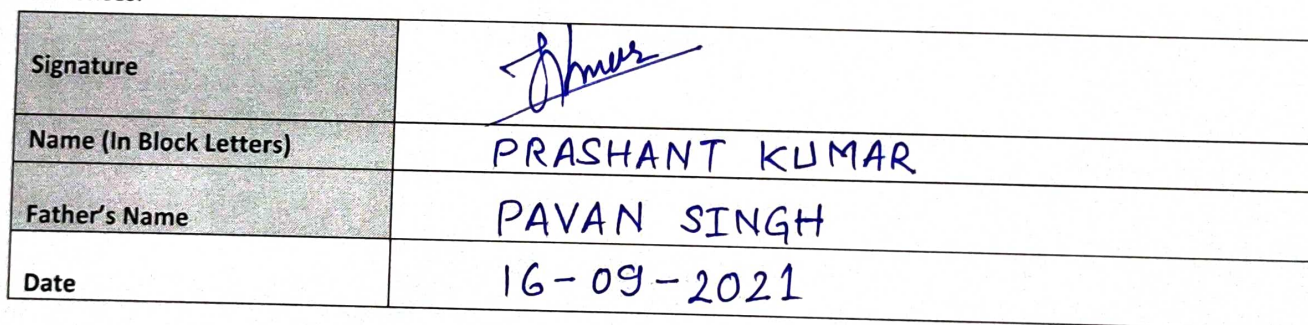 Signature
Name (In Block Letters) PRASHANT KUMAR
Father's Name PAVAN SINGH
Date 16-09-2021